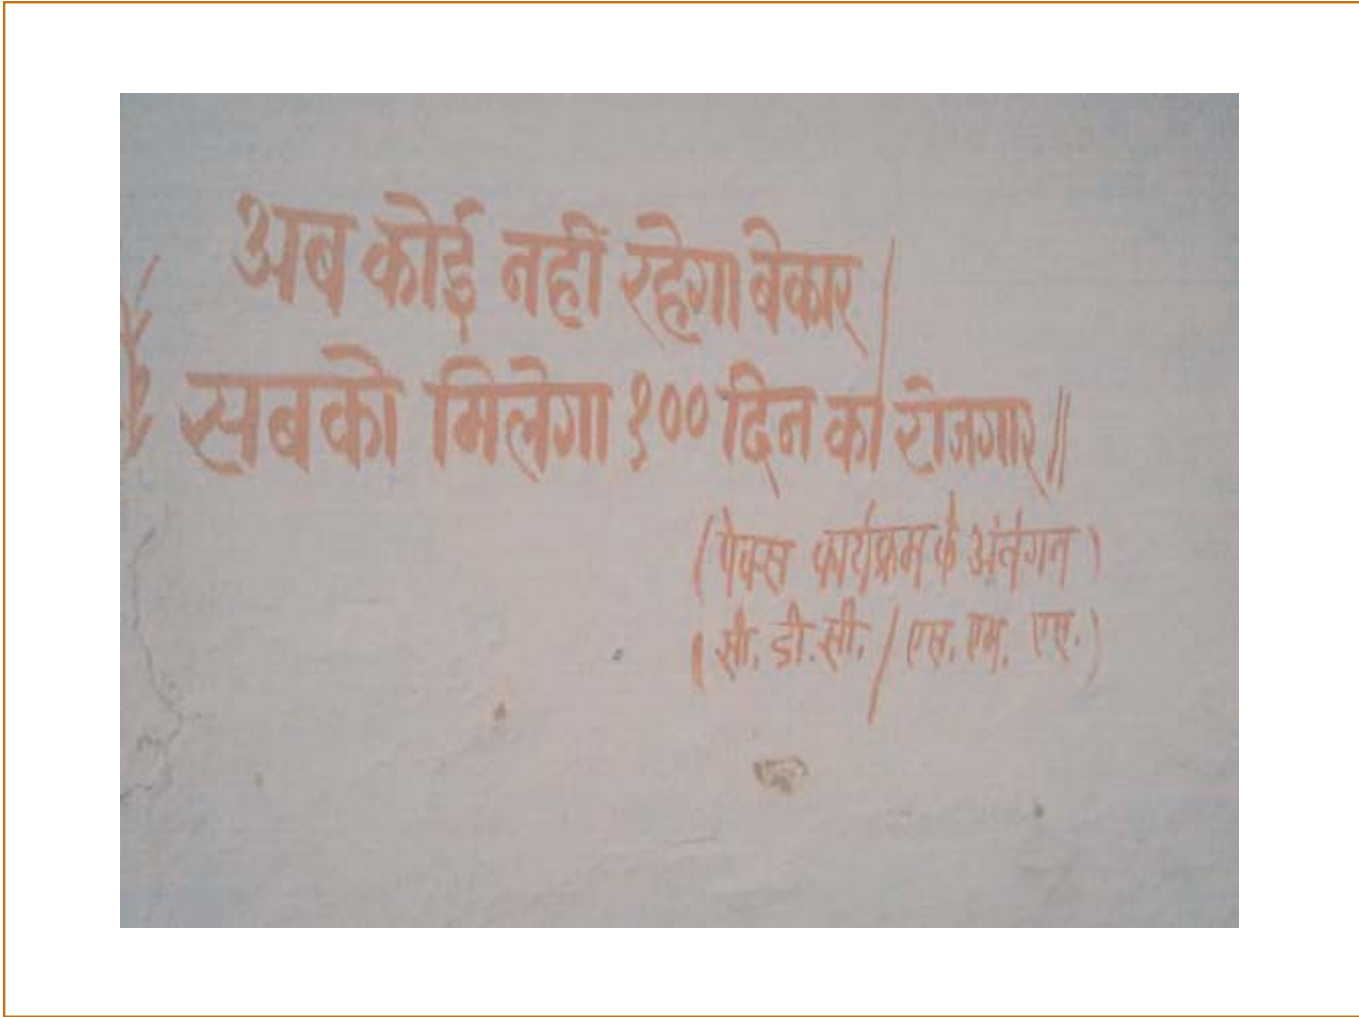 अब कोई नही रहेगा बेकार।
सबको मिलेगा १०० दिन का रोजगार॥
(पेक्स कार्यक्रम के अंर्तगत)
(सी. डी. सी. / एस. एम. एस.)